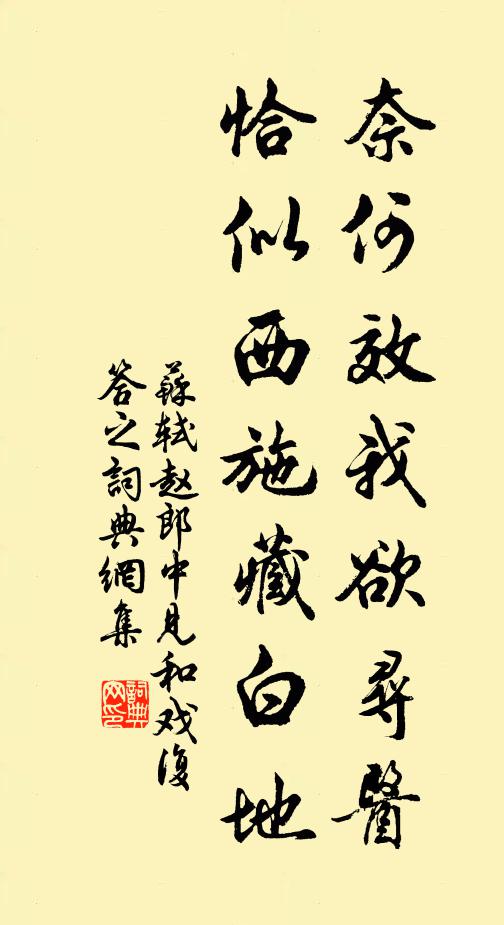 奈何效我欲尋醫
恰似西施藏白地
蘇軾赵郎中見和戏復
答之詞典網集
詞典网印